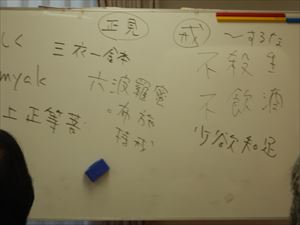 正見
戒 〜するな
しく
三衣一鉢
不殺生
myak
六波羅蜜
不飲酒
上正等菩
布施
持戒
少欲知足